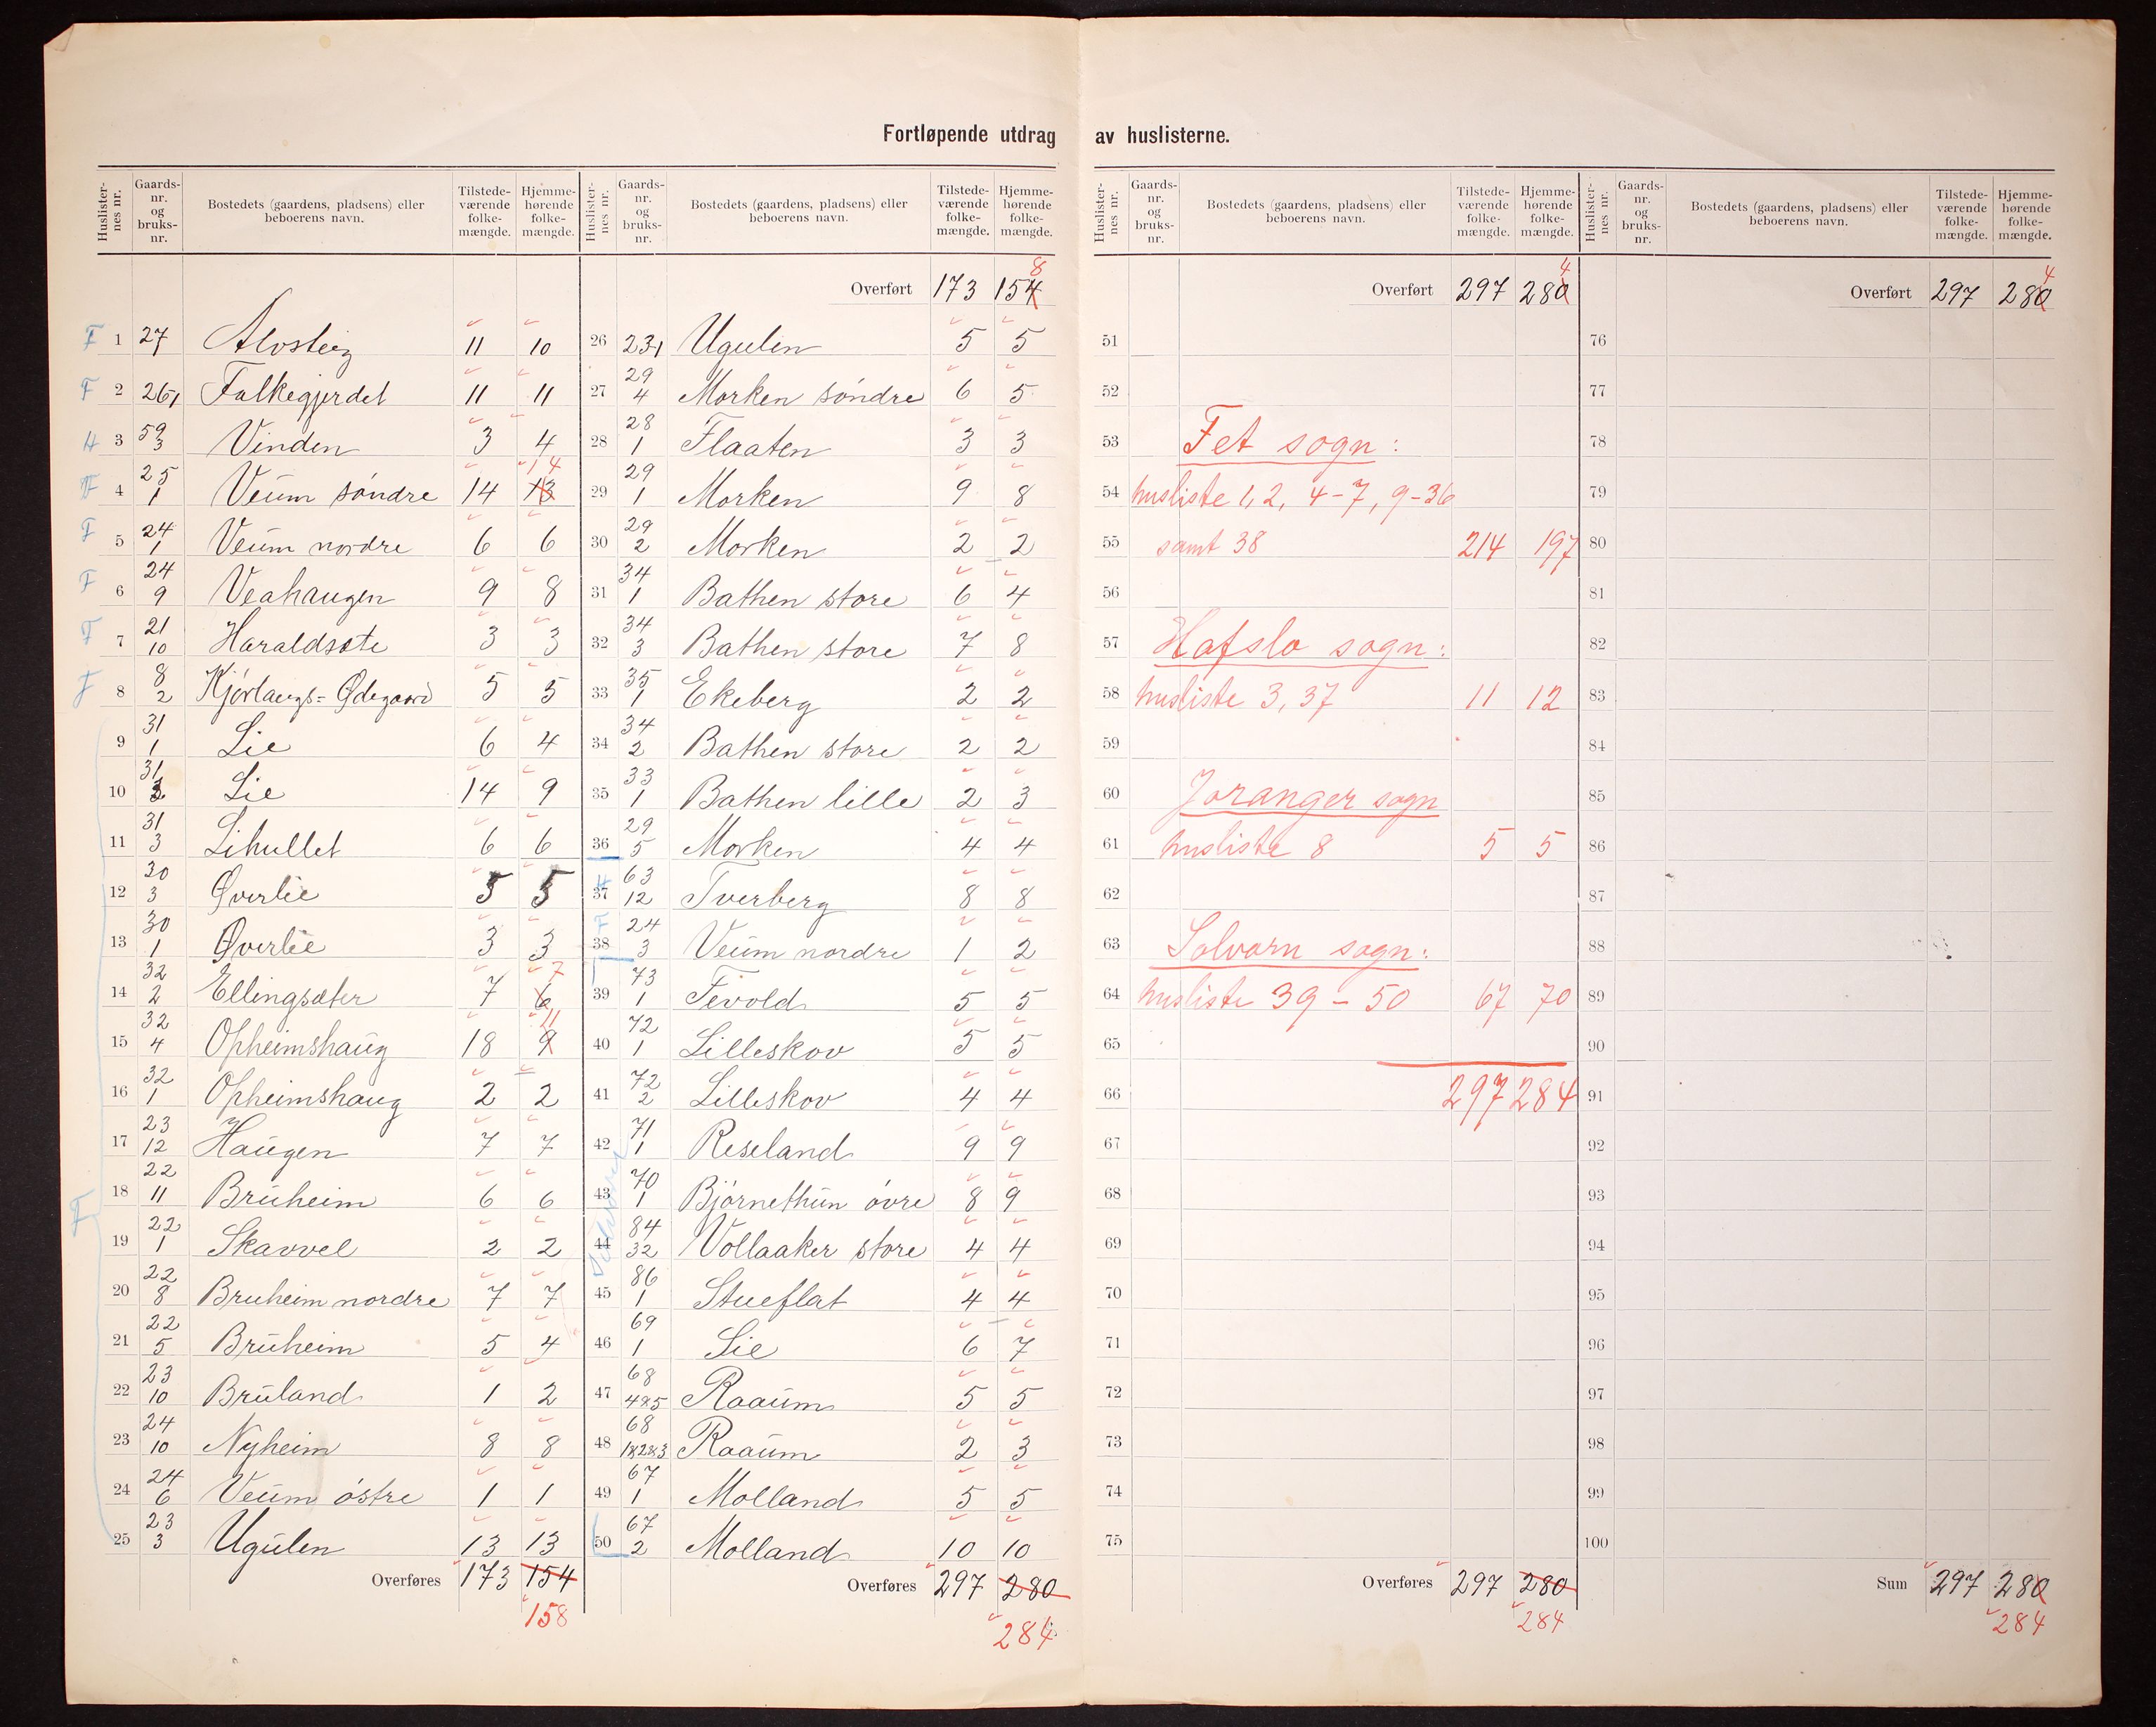 Fortløpende utdrag av huslisterne.
Huslisternes nr. Gaards-nr. og bruks-nr. Bostedets (gaardens, pladsens) eller beboerens navn. Tilstedeværende folkemængde. Hjemmehørende folkemængde.
F 1 27 1 Alvsteig 11 10
F 2 26,1 Falkegjerdet 11 11
H 3 59 3 Vinden 3 4
F 4 25 1 Veum søndre 14 13 14
F 5 24 1 Veum nordre 6 6
F 6 24 9 Veahaugen 9 8
F 7 21 10 Haraldsæte 3 3
J 8 8 2 Kjørlaugs-Ødegaard 5 5
9 31 1 Lie 6 4
10 31 2 Lie 14 9
11 31 3 Lihullet 6 6
12 30 3 Øverlie 5 5
13 30 1 Øverlie 3 3
14 32 2 Ellingsæter 7 6 7
15 32 4 Opheimshaug 18 9 11
16 32 1 Opheimshaug 2 2
17 23 12 Haugen 7 7
F
18 22 11 Bruheim 6 6
19 22 1 Skavvel 2 2
20 22 8 Bruheim nordre 7 7
21 22 5 Bruheim 5 4
22 23 10 Bruland 1 2
23 24 10 Nyheim 8 8
24 24 6 Veum østre 1 1
25 23 3 Ugulen 13 13
Overføres 173 154
158
Huslisternes nr. Gaards-nr. og bruks-nr. Bostedets (gaardens, pladsens) eller beboerens navn. Tilstedeværende folkemængde. Hjemmehørende folkemængde.
Overført 173 154 8
26 23,1 Ugulen 5 5
27 29 4 Morken søndre 6 5
28 28 1 Flaaten 3 3
29 29 1 Morken 9 8
30 29 2 Morken 2 2
31 34 1 Bathen store 6 4
32 34 3 Bathen store 7 8
33 35 1 Ekeberg 2 2
34 34 2 Bathen store 2 2
35 33 1 Bathen lille 2 3
36 29 5 Morken 4 4
H 37 63 12 Tverberg 8 8
F 38 24 3 Veum nordre 1 2
39 73 1 Fevold 5 5
40 72 1 Lilleskov 5 5
41 72 2 Lilleskov 4 4
42 71 1 Reseland 9 9
43 70 1 Bjørnethun øvre 8 9
44 84 32 Vollaaker store 4 4
45 86 1 Stueflat 4 4
46 69 1 Lie 6 7
47 68 4&5 Raaum 5 5
48 68 1&2&3 Raaum 2 3
49 67 1 Molland 5 5
50 67 2 Molland 10 10
Overføres 297 280
284
Huslisternes nr. Gaards-nr. og bruks-nr. Bostedets (gaardens, pladsens) eller beboerens navn. Tilstedeværende folkemængde. Hjemmehørende folkemængde.
Overført 297 280 4
51
52
53 Fet sogn:
54 husliste 1, 2, 4-7, 9-36
55 samt 38 214 197
56
57 Hafslo sogn:
58 husliste 3, 37 11 12
59
60 Joranger sogn
61 husliste 8 5 5
62
63 Solvorn sogn:
64 husliste 39 - 50 67 70
65
66 297 284
67
68
69
70
71
72
73
74
75
Overføres 297 280
284
Huslisternes nr. Gaards-nr. og bruks-nr. Bostedets (gaardens, pladsens) eller beboerens navn. Tilstedeværende folkemængde. Hjemmehørende folkemængde.
Overført 297 280 4
76
77
78
79
80
81
82
83
84
85
86
87
88
89
90
91
92
93
94
95
96
97
98
99
100
Sum 297 280
284